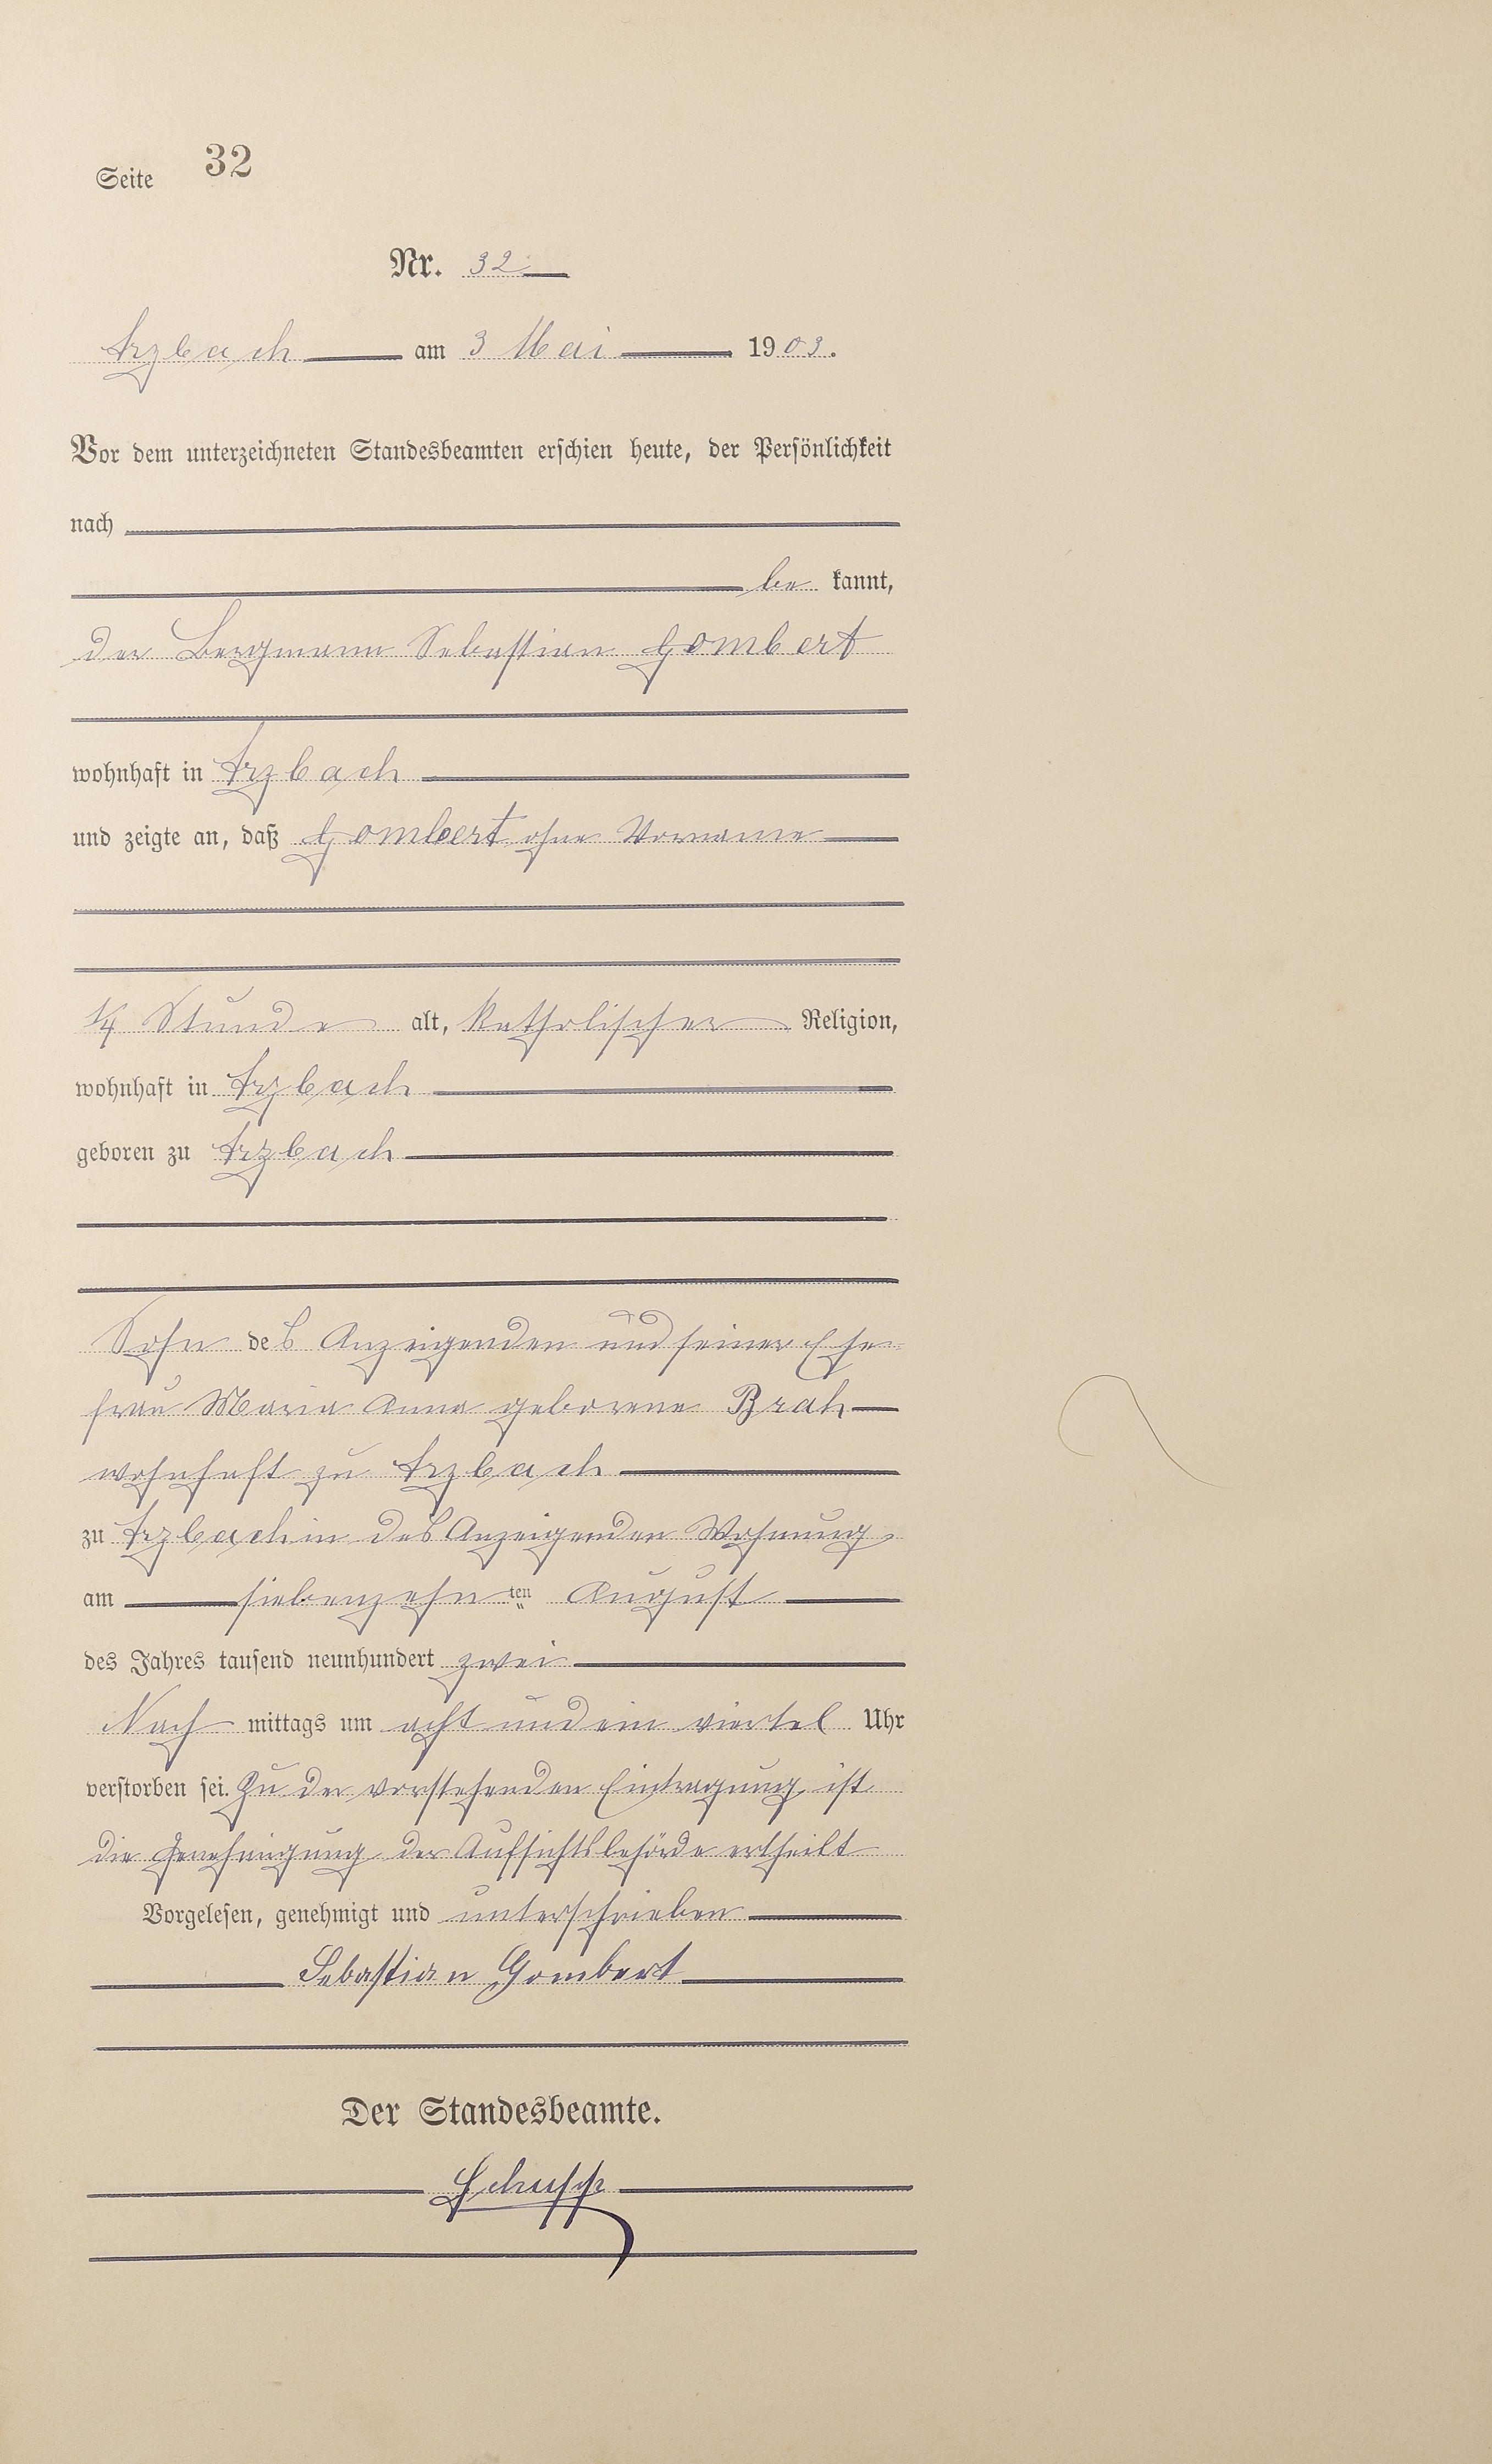 Seite 32
Nr. 32
Arzbach am 3 Mai 1903.
Vor dem unterzeichneten Standesbeamten erschien heute, der Persönlichkeit
nach
be kannt,
der Bergmann Sebastian Gombert
wohnhaft in Arzbach
und zeigte an, daß Gombert ohne Vorname
1/4 Stunde alt, katholischer Religion,
wohnhaft in Arzbach
geboren zu Arzbach
Sohn des Anzeigenden und seiner Ehe-
frau Maria Anna geborene Brah
wohnhaft zu Arzbach
zu Arzbach in des Anzeigenden Wohnung
am siebenzehnten August
des Jahres tausend neunhundert zwei
Nach mittags um acht und ein viertel Uhr
verstorben sei. Zu der vorstehenden Eintragung ist
die Genehmigung der Aufsichtsbehörde ertheilt
Vorgelesen, genehmigt und unterschrieben
Sebastian Gombert
Der Standesbeamte.
Schupp